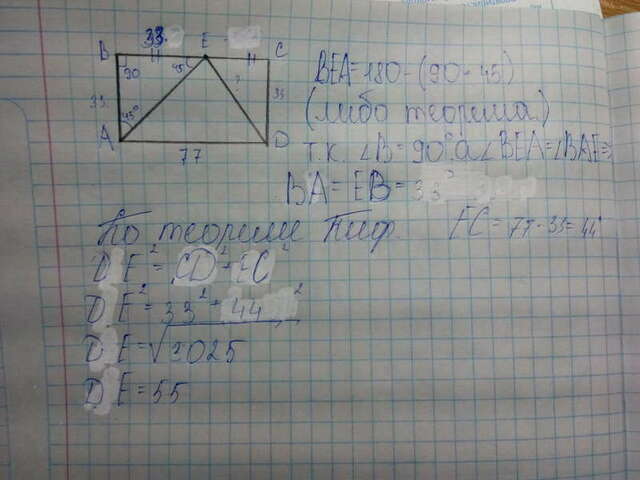 B 33 E C
90 45 ?
33 45° 33
A 77 D
BEA=180-(90-45)
(либо теорема)
т.к. ∠B=90° а ∠BEA=∠BAE=>
BA=EB=33
По теореме Пиф. EC=77-33=44
DE²=CD²+EC²
DE²=33²+44²
DE=√3025
DE=55